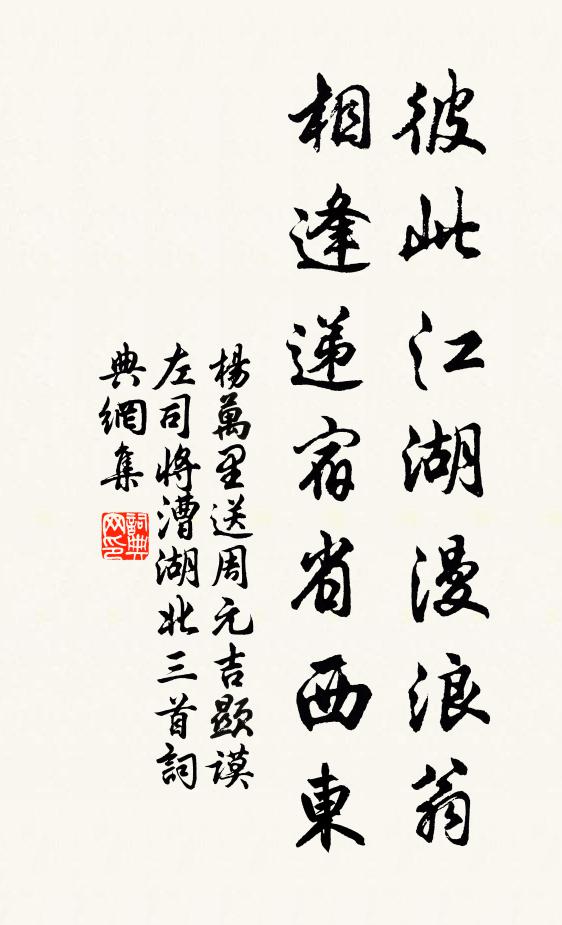 彼此江湖漫浪翁
相逢递宿省西東
楊萬里送周元吉顯謨
左司將漕湖北三首詞
典網集
詞典
网印